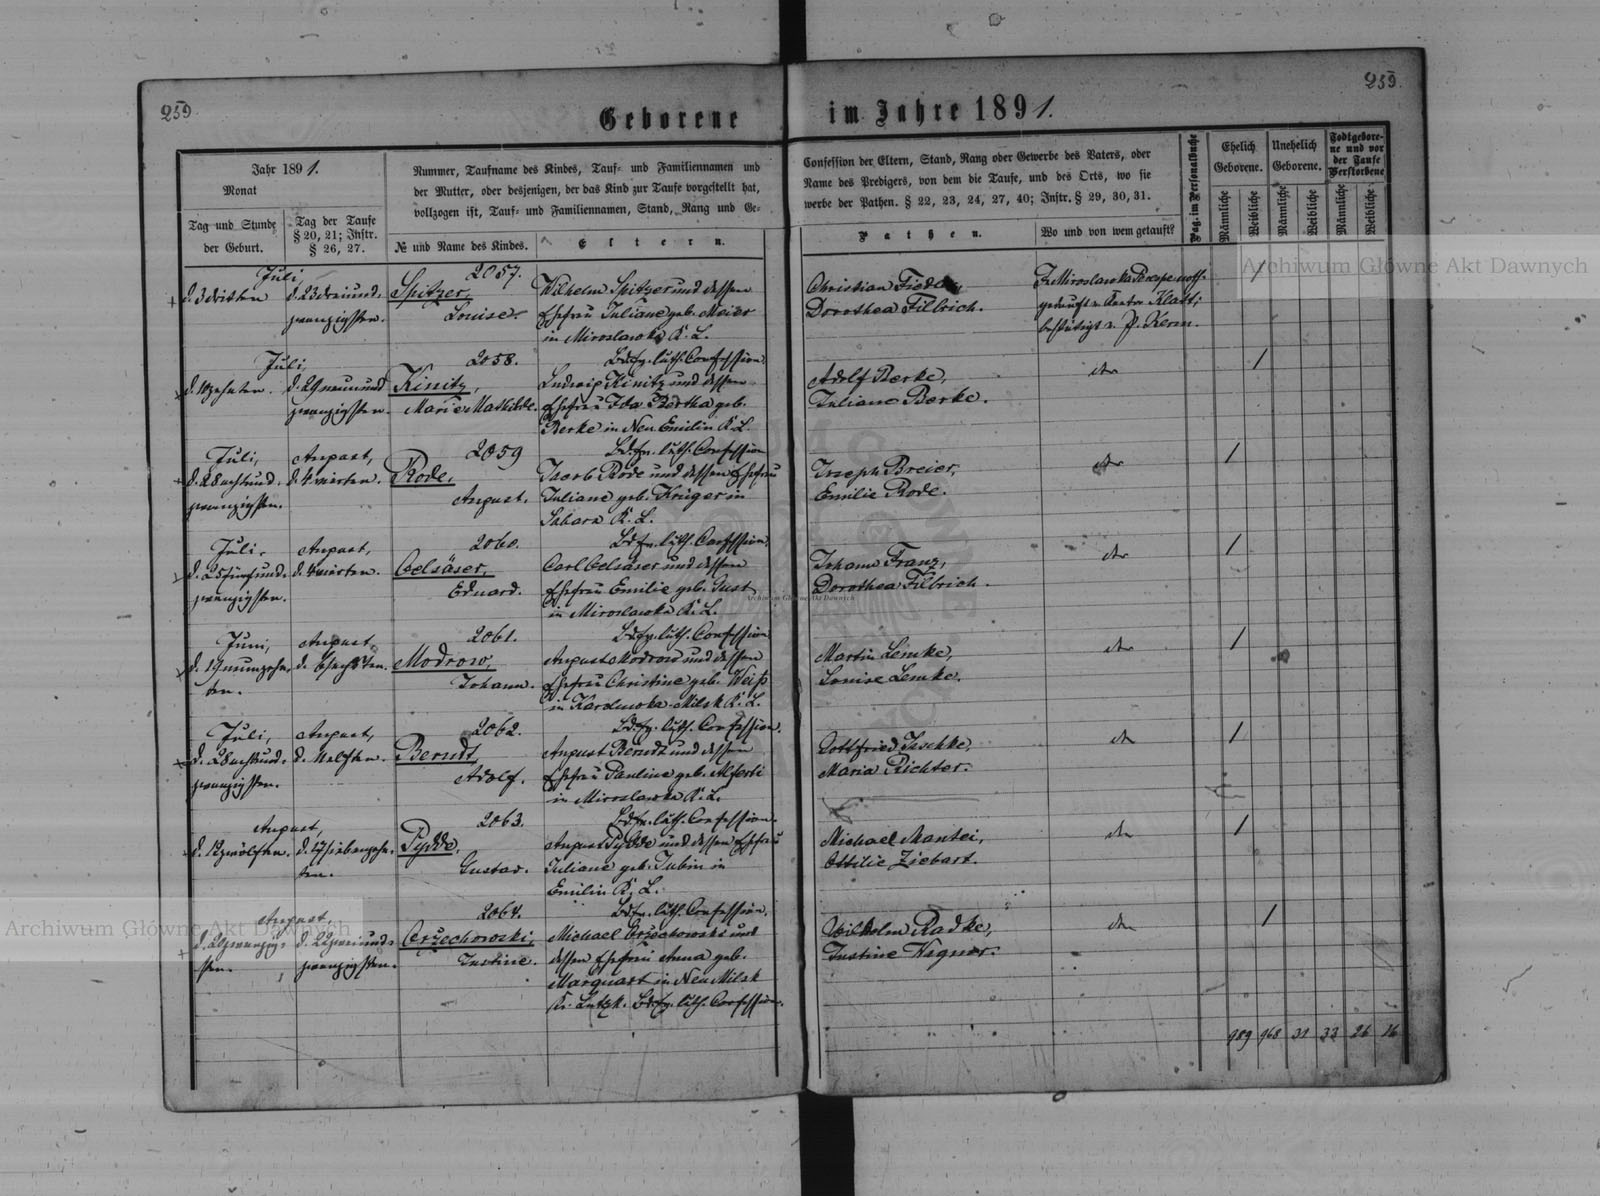 259.
259.
Geborene im Jahre 1891.
Jahr 1891.
Monat
Tag und Stunde
der Geburt.
Tag der Taufe
§ 20, 21; Instr.
§ 26, 27.
Nummer, Taufname des Kindes, Tauf- und Familiennamen und
der Mutter, oder desjenigen, der das Kind zur Taufe vorgestellt hat,
vollzogen ist, Tauf- und Familiennamen, Stand, Rang und Ge-
№ und Name des Kindes.
Eltern.
Confession der Eltern, Stand, Rang oder Gewerbe des Vaters, oder
Name des Predigers, von dem die Taufe, und des Orts, wo sie
werbe der Pathen. § 22, 23, 24, 27, 40; Instr. § 29, 30, 31.
Pathen.
Wo und von wem getauft?
Pag. im Personalbuche
Ehelich
Geborene.
Unehelich
Geborene.
Todtgebore-
ne und vor
der Taufe
Verstorbene
Männliche
Weibliche
Männliche
Weibliche
Männliche
Weibliche
Juli
d. 3 dritten
d. 23 dreiund-
zwanzigsten.
2057.
Spitzer,
Louise.
Wilhelm Spitzer und dessen
Ehefrau Juliane geb. Meier
in Miroslawka K. L.
Bde. ev. luth. Confession.
Christian
Dorothea Filbrich.
In Miroslawka
getauft v. Kantor Klatt;
bestätigt v. P. Kerm.
Juli,
d. 10 zehnten.
d. 29 neunund
zwanzigsten.
2058.
Kinitz,
Marie Mathilde.
Ludwig Kinitz und dessen
Ehefrau Ida Bertha geb.
Berke in Neu Emilin K. L.
Bde. ev. luth. Confession
Adolf Berke,
Juliane Berke.
dto
Juli,
d. 28 achtund-
zwanzigsten.
August,
d. 4 vierten.
2059
Rode,
August.
Jacob Rode und dessen Ehefrau
Juliane geb. Krüger in
K. L.
Bde. ev. luth. Confession.
Joseph Breier,
Emilie Rode.
dto
Juli,
d. 25 fünfund-
zwanzigsten.
August,
d. 4 vierten.
2060.
Oelsäser,
Eduard.
Carl Oelsäser und dessen
Ehefrau Emilie geb. Gust
in Miroslawka K. L.
Bde. ev. luth. Confession
Johann Franz,
Dorothea Filbrich.
dto
Juni,
d. 19 neunzehn-
ten.
August
d. 6 sechsten.
2061.
Modrow,
Johann.
August Modrow und dessen
Ehefrau Christine geb. Weiß
in Milsk K. L.
Bde. ev. luth. Confession.
Martin Lemke,
Louise Lemke.
dto
Juli,
d. 28 achtund-
zwanzigsten.
August,
d. 11 elften.
2062.
Berndt,
Adolf.
August Berndt und dessen
Ehefrau Pauline geb.
in Miroslawka K. L.
Bde. ev. luth. Confession.
Gottfried Jeschke,
Maria Richter.
dto
August,
d. 12 zwölften.
d. 17 siebenzehn-
ten.
2063.
Pydde,
Gustav.
August Pydde und dessen Ehefrau
Juliane geb. Jubin in
Emilin K. L.
Bde. ev. luth. Confession.
Michael Mantei,
Ottilie Ziebart.
dto
August,
d. 20 zwanzig-
sten.
d. 22 zweiund-
zwanzigsten.
2064.
Orzechowski,
Justine.
Michael Orzechowski und
dessen Ehefrau Anna geb.
Marquart in Neu Milsk
Kr. Lutzk. Bde. ev. luth. Confession.
Wilhelm Radke,
Justine Wagner.
dto
989 968 31 33 26 16
Archiwum Główne Akt Dawnych
Archiwum Główne Akt Dawnych
Archiwum Główne Akt Dawnych